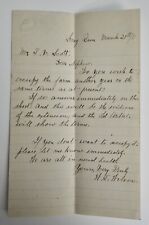 March 21st
Mr. F. W. Scott
Dear Nephew
Do you wish to
occupy the farm another year on the
same terms as at present
If so answer immediately on this
sheet and this will be the evidence
of the extension, and the 1st Article
will show the terms.
If you don't want to occupy it
please let me know immediately.
We are all in usual health
Yours very truly